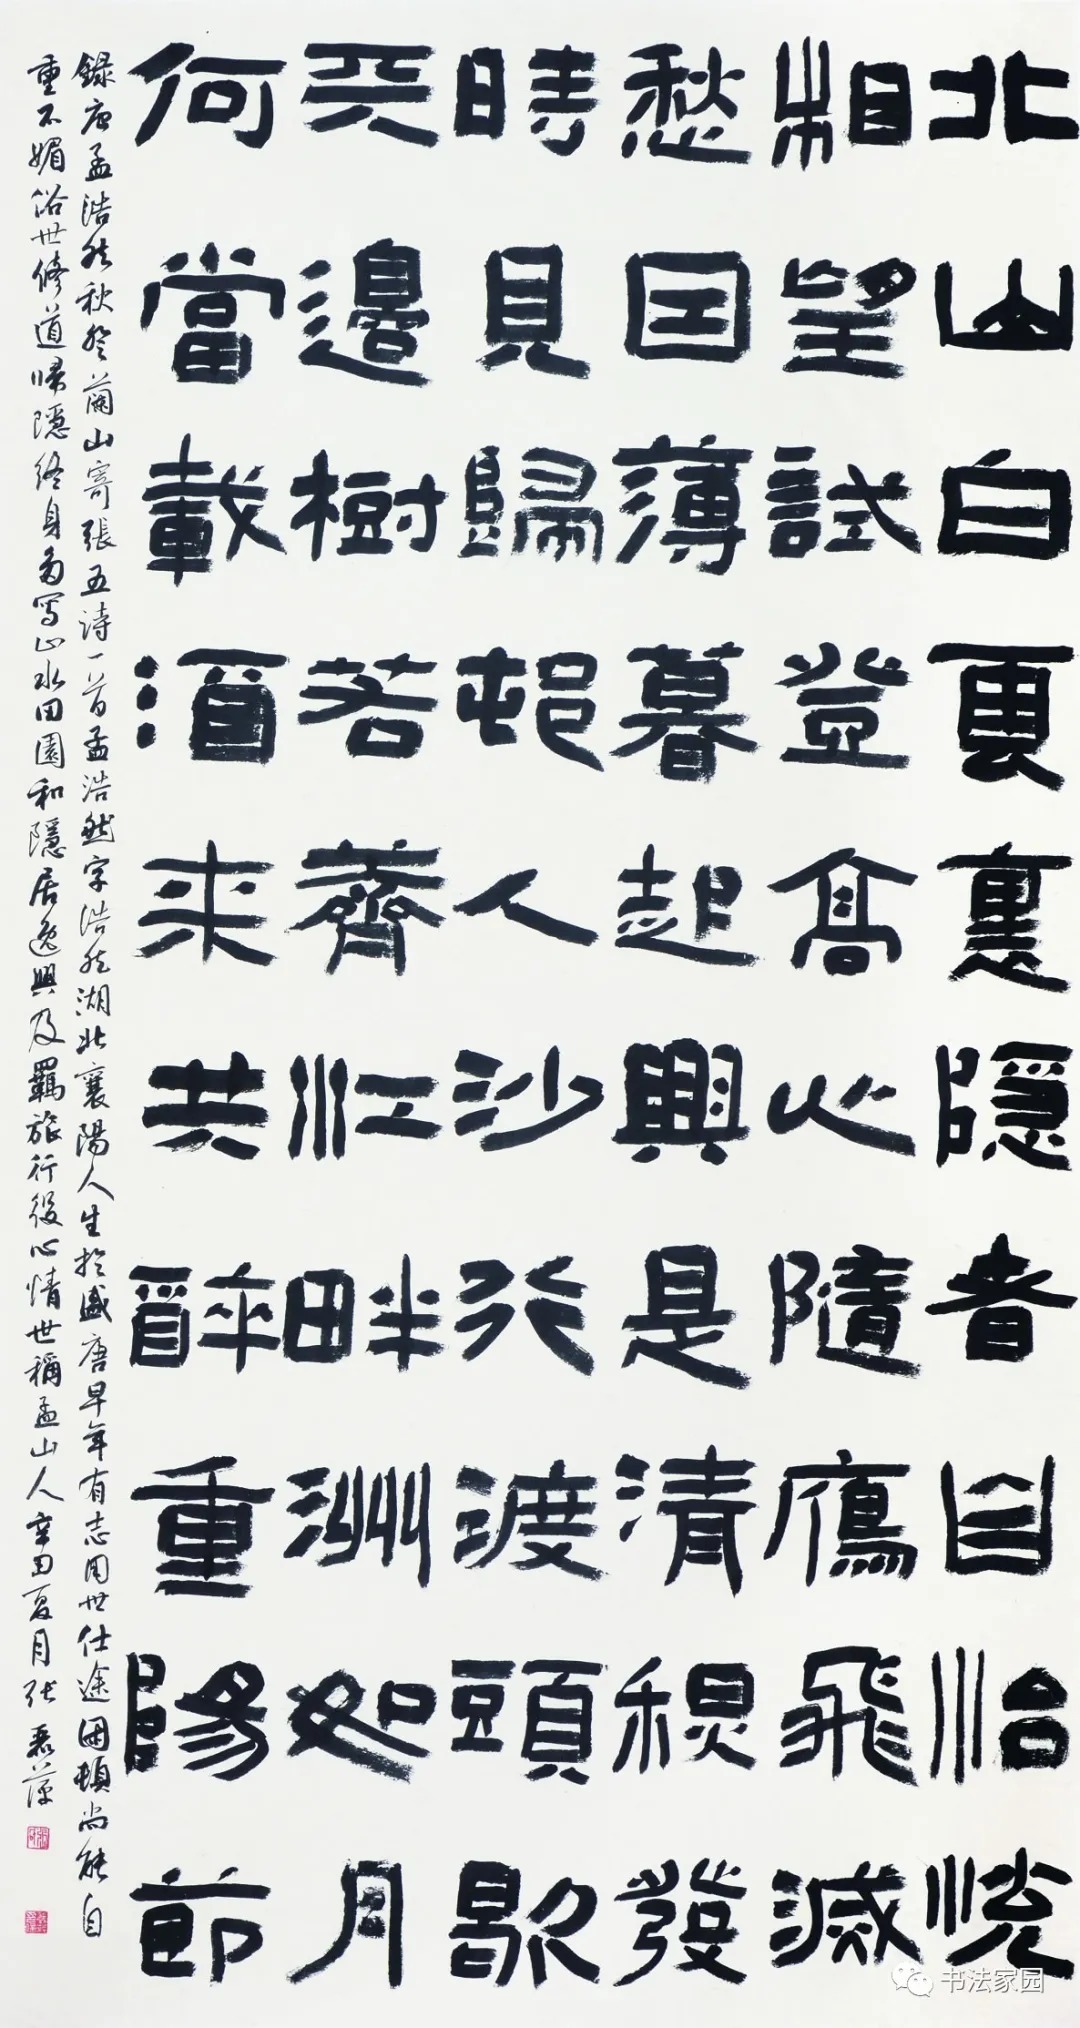 北山白雲裏隱者自怡悅
相望試登高心隨鴈飛滅
愁因薄暮起興是清秋發
時見歸邨人沙行渡頭歇
天邊樹若薺江畔洲如月
何當載酒來共醉重陽節
錄唐孟浩然秋登蘭山寄張五詩一首孟浩然字浩然湖北襄陽人生於盛唐早年有志用世仕途困頓尚能自
重不媚俗世修道歸隱終身多寫山水田園和隱居逸興及羈旅行役心情世稱孟山人辛丑夏月张
书法家园